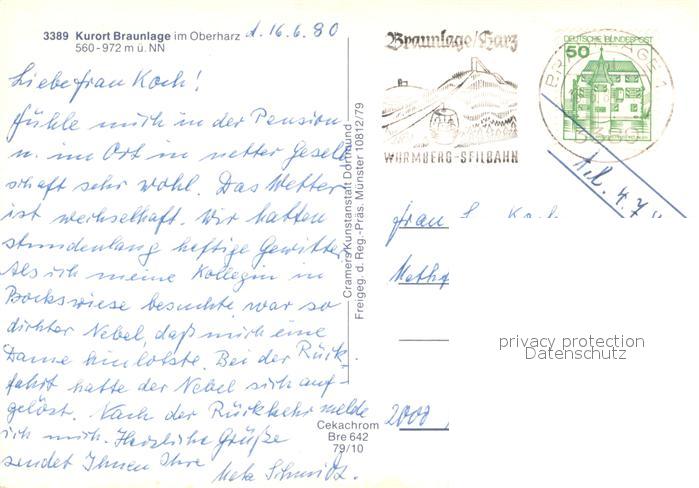 3389 Kurort Braunlage im Oberharz
560-972 m ü. NN
d. 16.6.80
Liebe Frau Koch!
Fühle mich in der Pension
u. im Ort in netter Gesell-
schaft sehr wohl. Das Wetter
ist wechselhaft. Wir hatten
stundenlang heftige Gewitter.
Als ich meine Kollegin in
Bockswiese besuchte, war so
dichter Nebel, daß mich eine
Dame hinlotste. Bei der Rück-
fahrt hatte der Nebel sich auf-
gelöst. Nach der Rückkehr melde
ich mich. Herzliche Grüße
sendet Ihnen Ihre
Meta Schmidt.
Cramers Kunstanstalt Dortmund
Freigeg. d. Reg.-Präs. Münster 10812/79
Cekachrom
Bre 642
79/10
Braunlage/Harz
WURMBERG-SEILBAHN
DEUTSCHE BUNDESPOST
50
BRAUNLAGE 1
3389
tel. 4.7
Frau
2000
privacy protection
Datenschutz